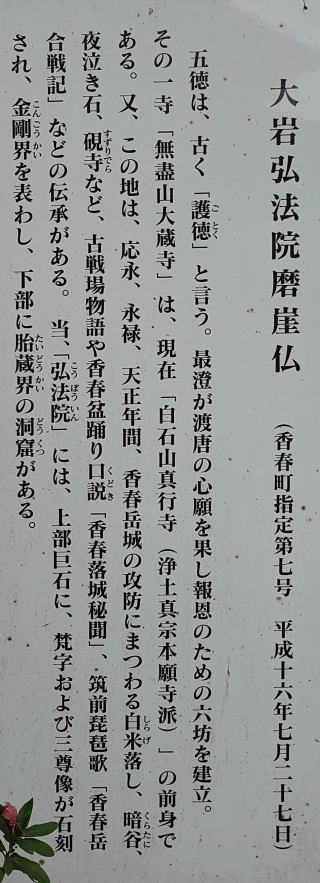 大岩弘法院磨崖仏　（香春町指定第七号　平成十六年七月二十七日）
五徳は、古く「護徳」と言う。最澄が渡唐の心願を果し報恩のための六坊を建立。
その一寺「無盡山大蔵寺」は、現在「白石山真行寺（浄土真宗本願寺派）」の前身で
ある。又、この地は、応永、永禄、天正年間、香春岳城の攻防にまつわる白米落し、暗谷、
夜泣き石、硯寺など、古戦場物語や香春盆踊り口説「香春落城秘聞」、筑前琵琶歌「香春岳
合戦記」などの伝承がある。当、「弘法院」には、上部巨石に、梵字および三尊像が石刻
され、金剛界を表わし、下部に胎蔵界の洞窟がある。